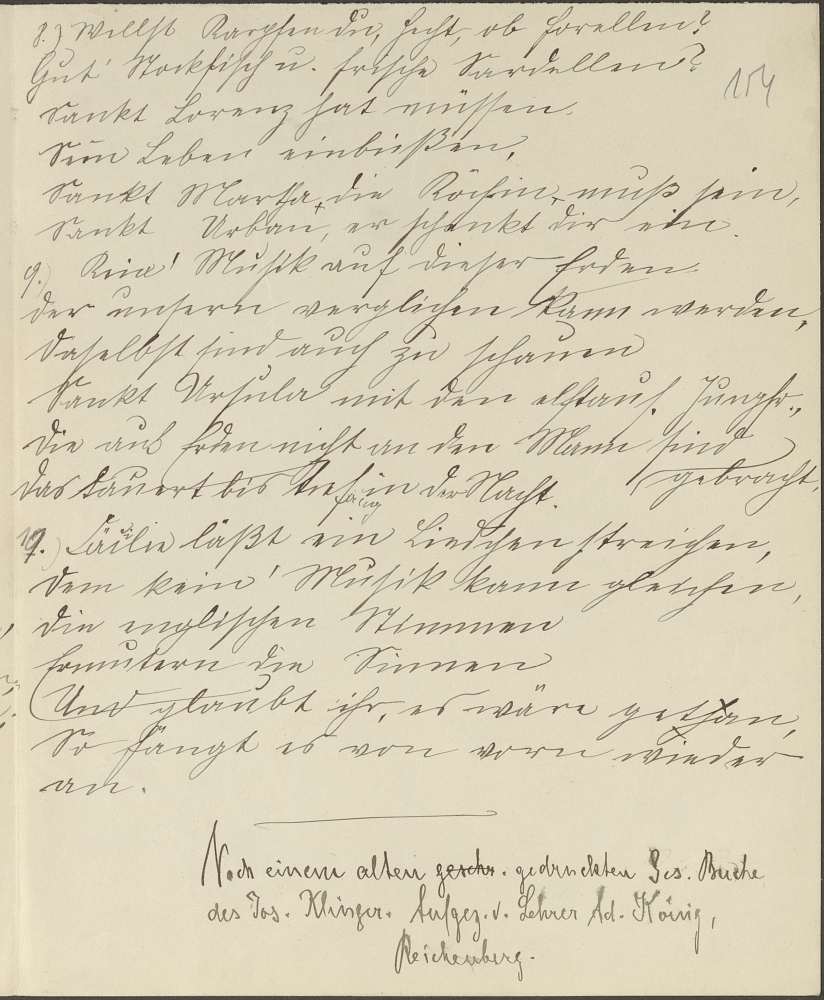 8.) Willst Karpfen du, Hecht, ob Forellen?
Gut' Stockfisch u. frische Sardellen?
154
Sankt Lorenz hat müssen
Sein Leben einbüßen,
Sankt Martha, die Köchin, muß sein,
Sankt Urban, er schenkt dir ein.
9.) Kein' Musik auf dieser Erden
Der unsern verglichen kann werden,
Daselbst sind auch zu schauen
Sankt Ursula mit den elftaus. Jungfr.,
Die auf Erden nicht an den Mann sind
gebracht,
Das dauert bis tief in der Nacht.
Cäcilie läßt ein Liedchen streichen,
Dem kein' Musik kann gleichen,
Die englischen Stimmen
Ermutern die Sinnen
Und glaubt ihr, es wäre gethan,
So fängt es von vorn wieder
an.
Nach einem alten geschr. gedruckten Ges. Buche
des Jos. Klinger. Aufgez. v. Lehrer Ad. König,
Reichenberg.